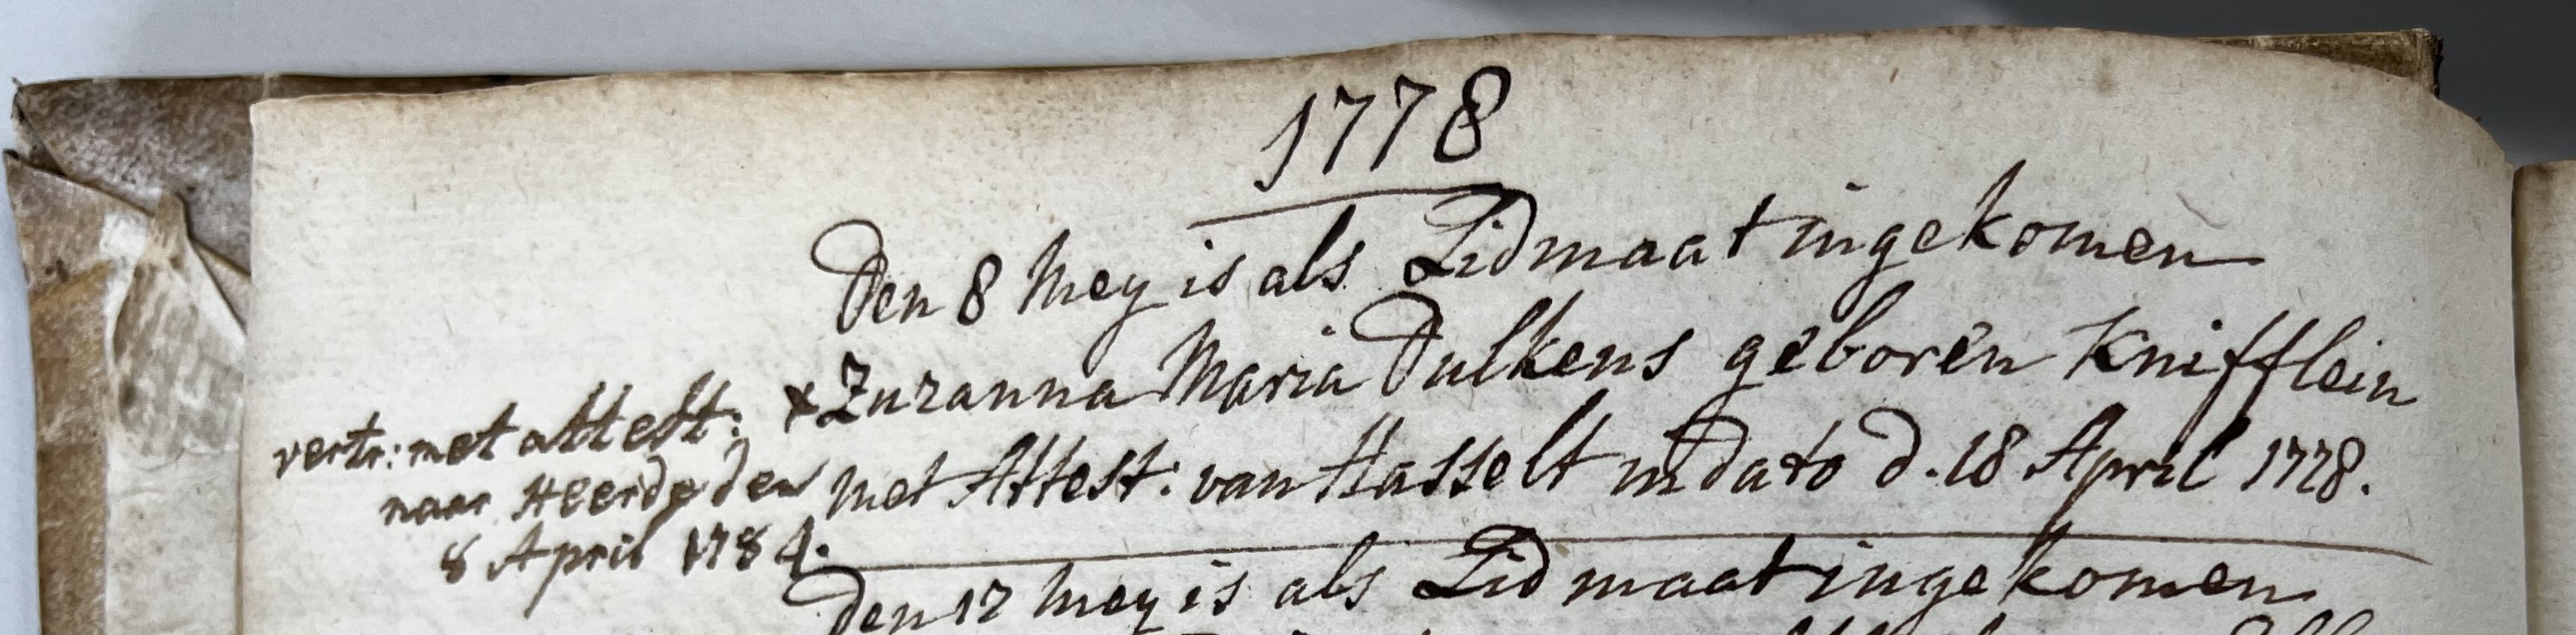 1778
Den 8 Mey is als Lidmaat ingekomen
x Zuzanna Maria Dulkens geboren Knifflein
met Attest: van Hasselt in dato d. 18 April 1778.
vertr: met attest:
naar Heerde den
8 April 1784.
Den 17 Mey is als Lidmaat ingekomen